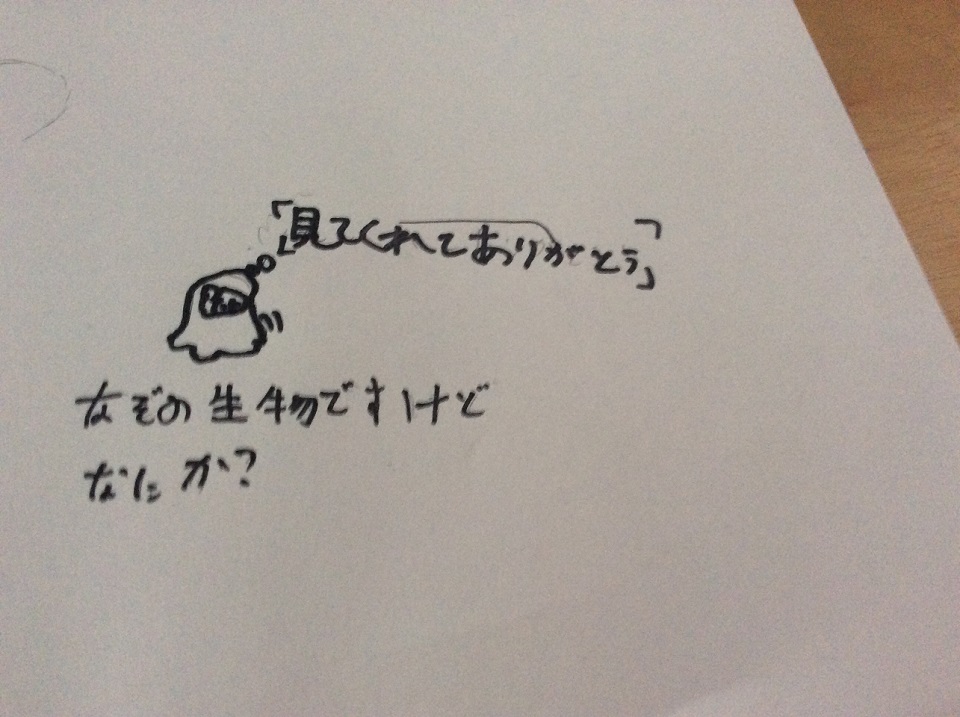 「見てくれてありがとう」
なぞの生物ですけど
なにか?